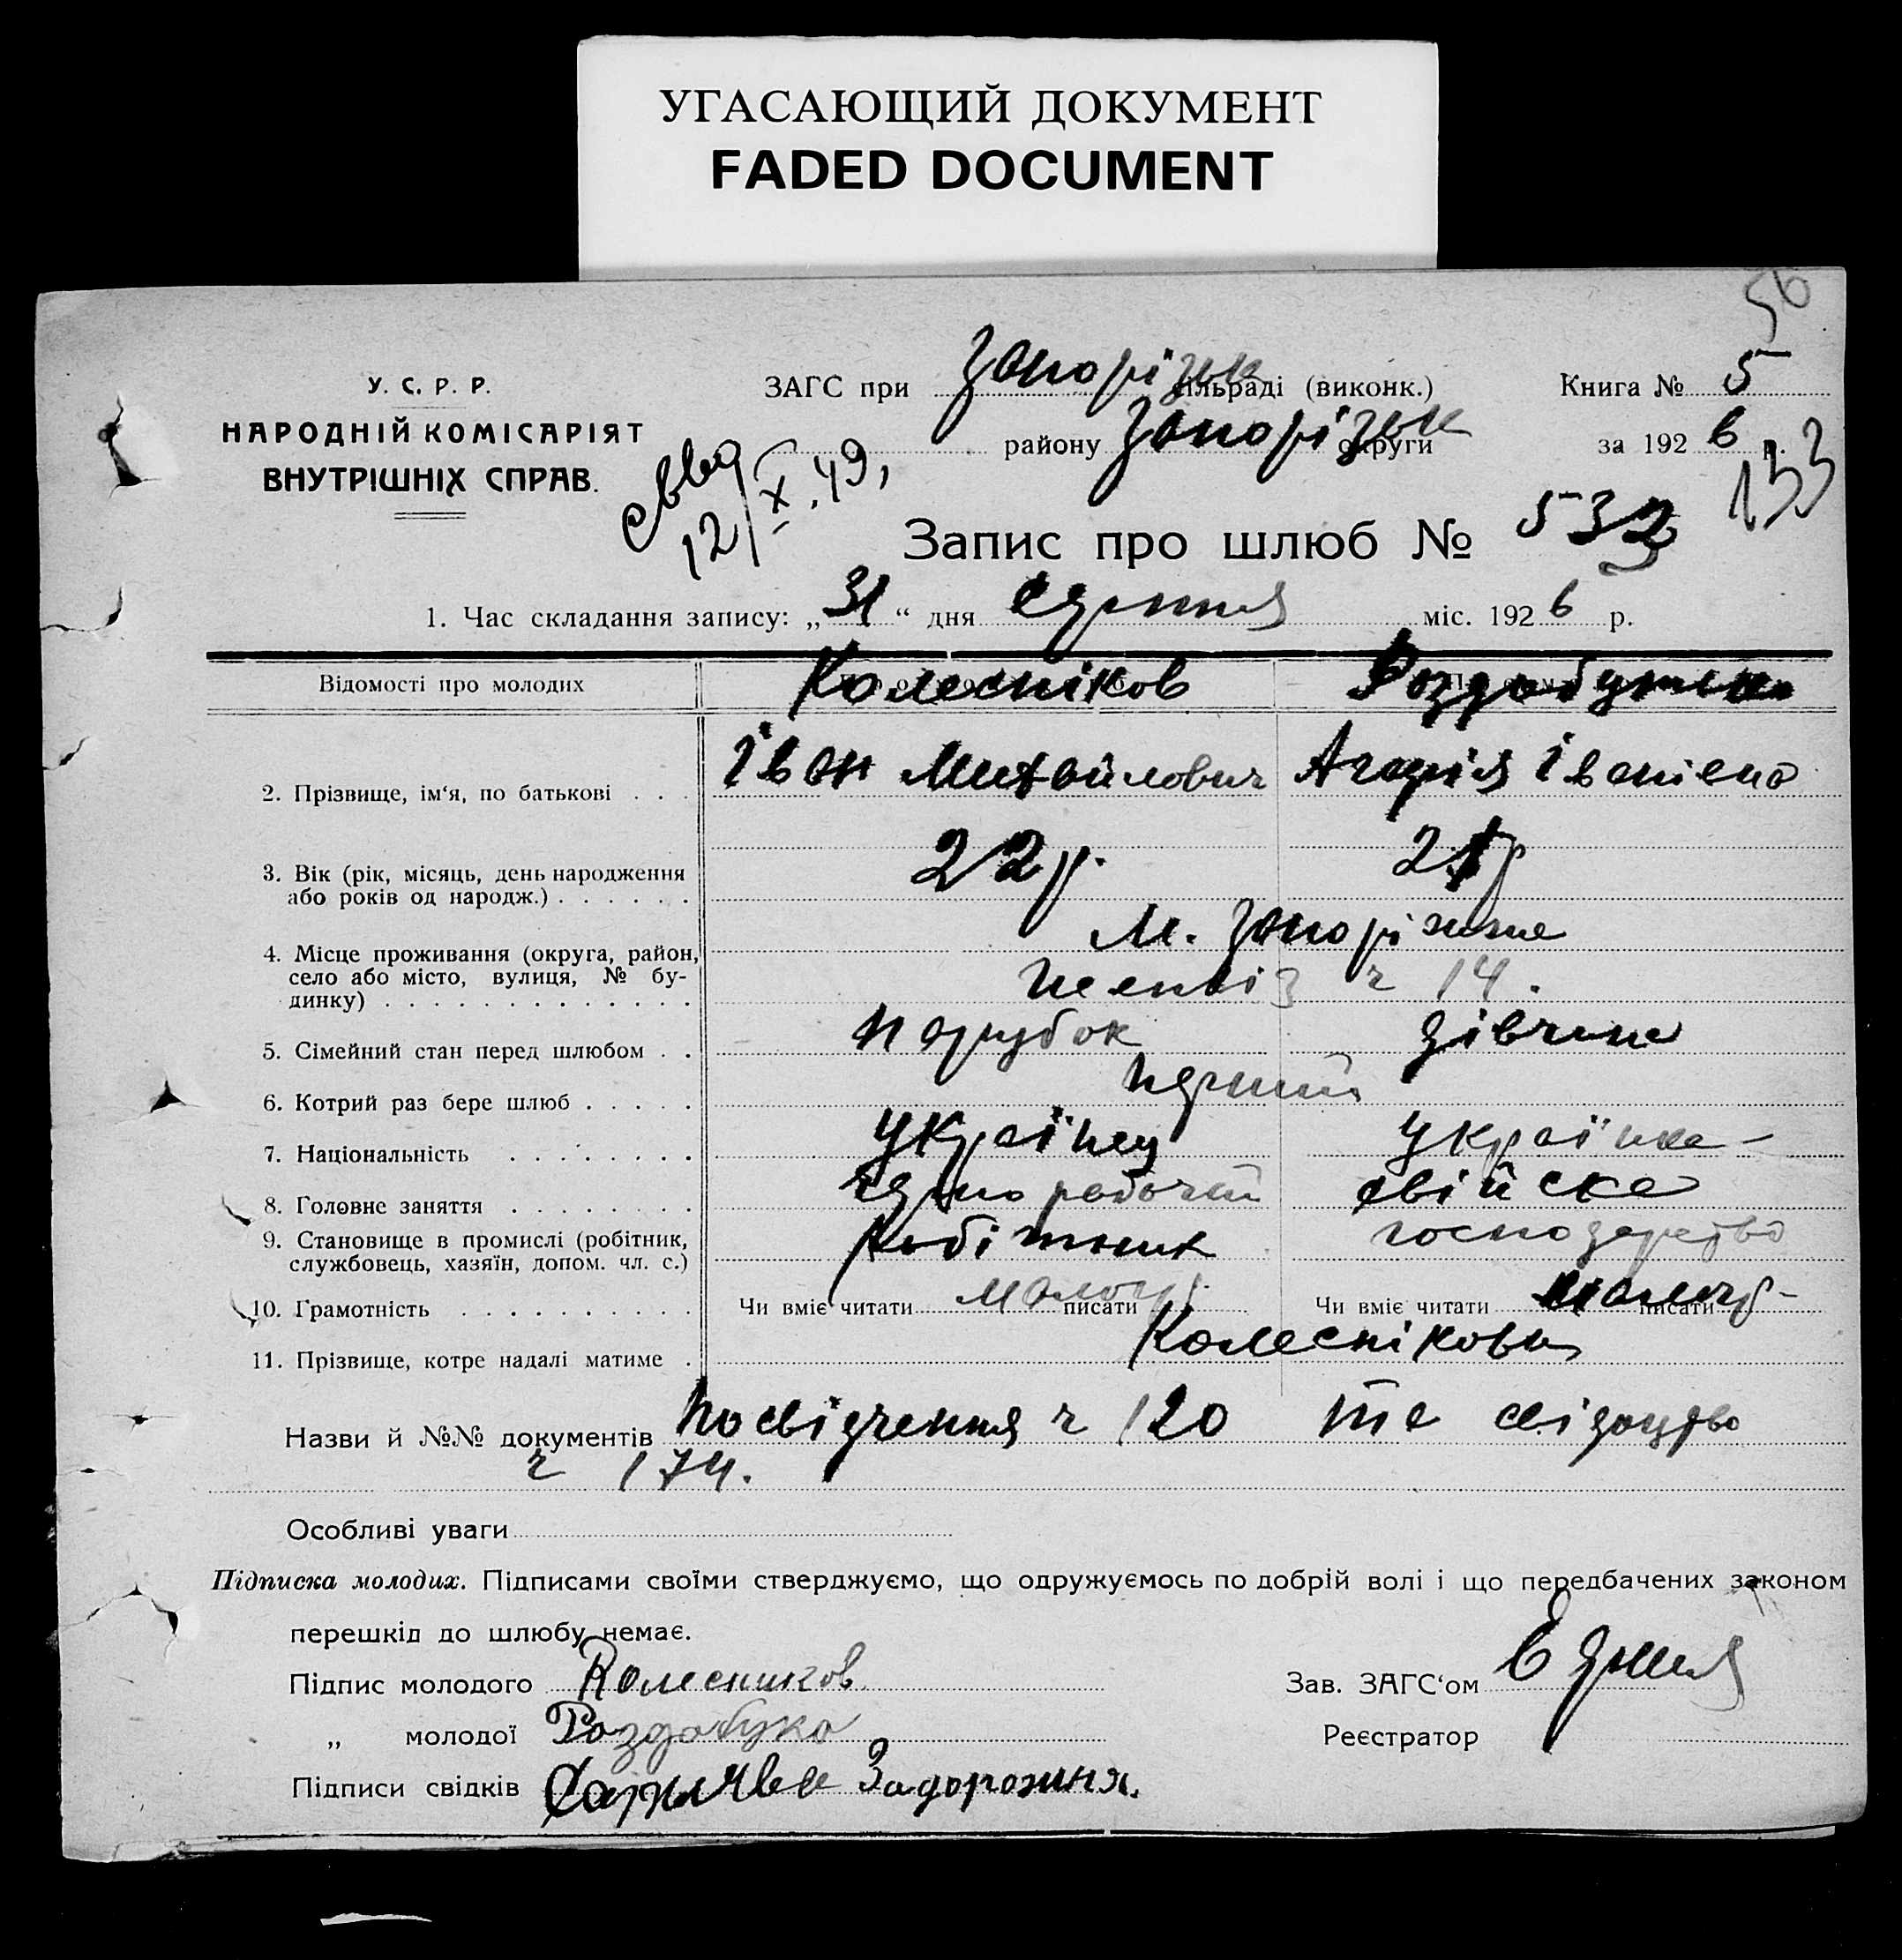 УГАСАЮЩИЙ ДОКУМЕНТ
FADED DOCUMENT
56
У. С. Р. Р.
НАРОДНІЙ КОМІСАРІЯТ
ВНУТРІШНІХ СПРАВ.
ЗАГС при Запорізьк сільраді (виконк.)
району Запорізьк округи
Книга № 5
за 1926 р.
133
12/X.49,
Запис про шлюб № 532
1. Час складання запису: „31“ дня серпня міс. 1926 р.
Відомості про молодих
Колесніков
2. Прізвище, ім‘я, по батькові . . . Іван Михайлович Агафія Іванівна
3. Вік (рік, місяць, день народження
або років од народж.) . . . . . . 22 р. 21 р
4. Місце проживання (округа, район,
село або місто, вулиця, № будинку) . . . . . . . . . . . . . м. Запоріжжя
ч 14.
5. Сімейний стан перед шлюбом . . парубок дівчина
6. Котрий раз бере шлюб . . . . . перший
7. Національність . . . . . . . . українец українка
8. Головне заняття . . . . . . . . чорнорабочий свійске
9. Становище в промислі (робітник,
службовець, хазяїн, допом. чл. с.) Робітник господарство
10. Грамотність . . . . . . . . . . Чи вміє читати малогр. писати Чи вміє читати малогр- писати
11. Прізвище, котре надалі матиме . Колеснікови
Назви й №№ документів Посвідчення ч 120 та свідоцтво
ч 174.
Особливі уваги
Підписка молодих. Підписами своїми стверджуємо, що одружуємось по добрій волі і що передбачених законом
перешкід до шлюбу немає.
Підпис молодого Колесников
Зав. ЗАГС‘ом
„ молодої Роздобудко
Реєстратор
Підписи свідків Задорожня.